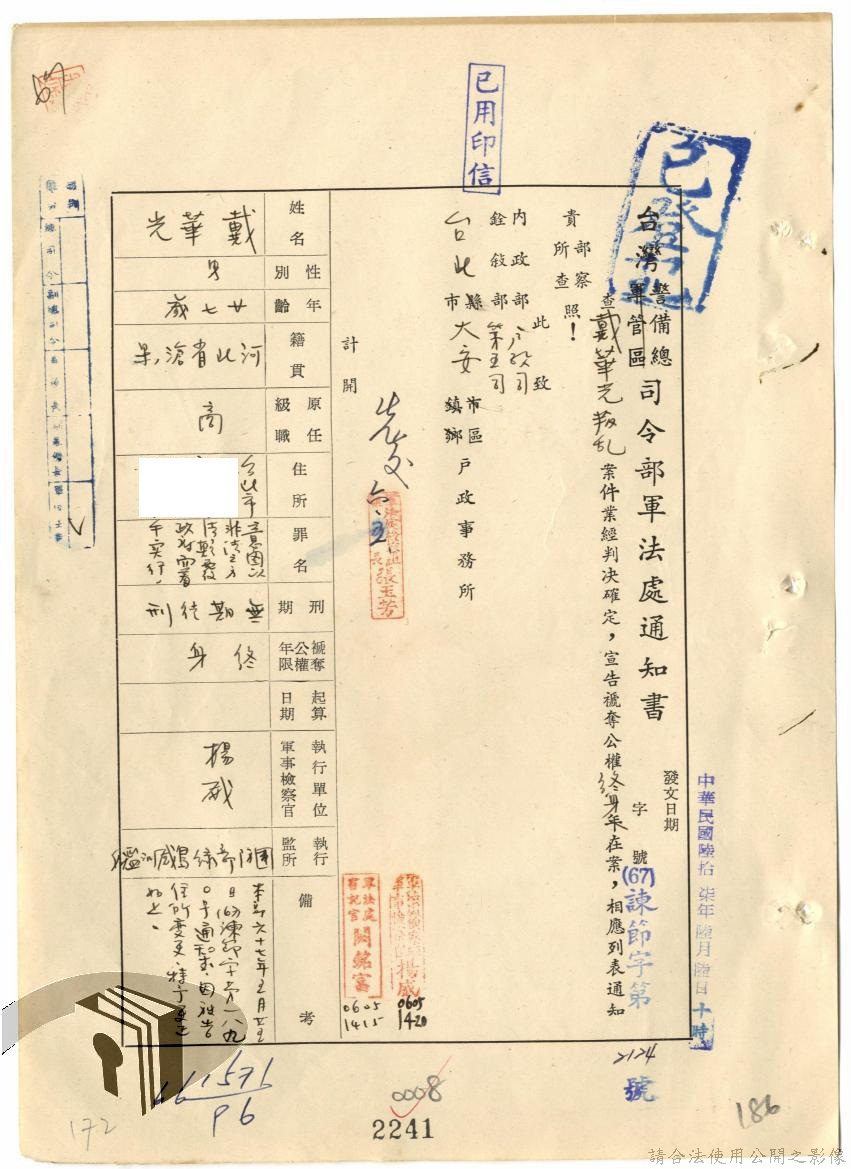 已用印信
台灣警備總司令部軍法處通知書
軍管區
發文日期
中華民國陸拾柒年陸月陸日十時
字號
(67)諫節字第2124號
查戴華光叛乱案件業經判决確定,宣告褫奪公權終身年在案,相應列表通知
貴部所察查照!
此致
內政部戶政司
銓敘部第五司
台北市縣大安市區鎮鄉戶政事務所
計開
先發
六、五
張玉芳
軍法處書記官 閻銘富
0605
1415
楊威
0605
1420
姓名
戴華光
性別
男
年齡
廿七歲
籍貫
河北省滄縣
原任級職
商
住所
台北市
罪名
意圖以非法之方法顛覆政府而著手實行
刑期
無期徒刑
褫奪公權年限
終身
起算日期
執行單位軍事檢察官
楊威
執行監所
國防部綠島感訓監獄
備考
本部六十七年五月
日(67)諫節字第一八九
〇号通知書因被告
住所變更,特予更正
如上。
661576
P6
0008
2241
172
186
請合法使用公開之影像